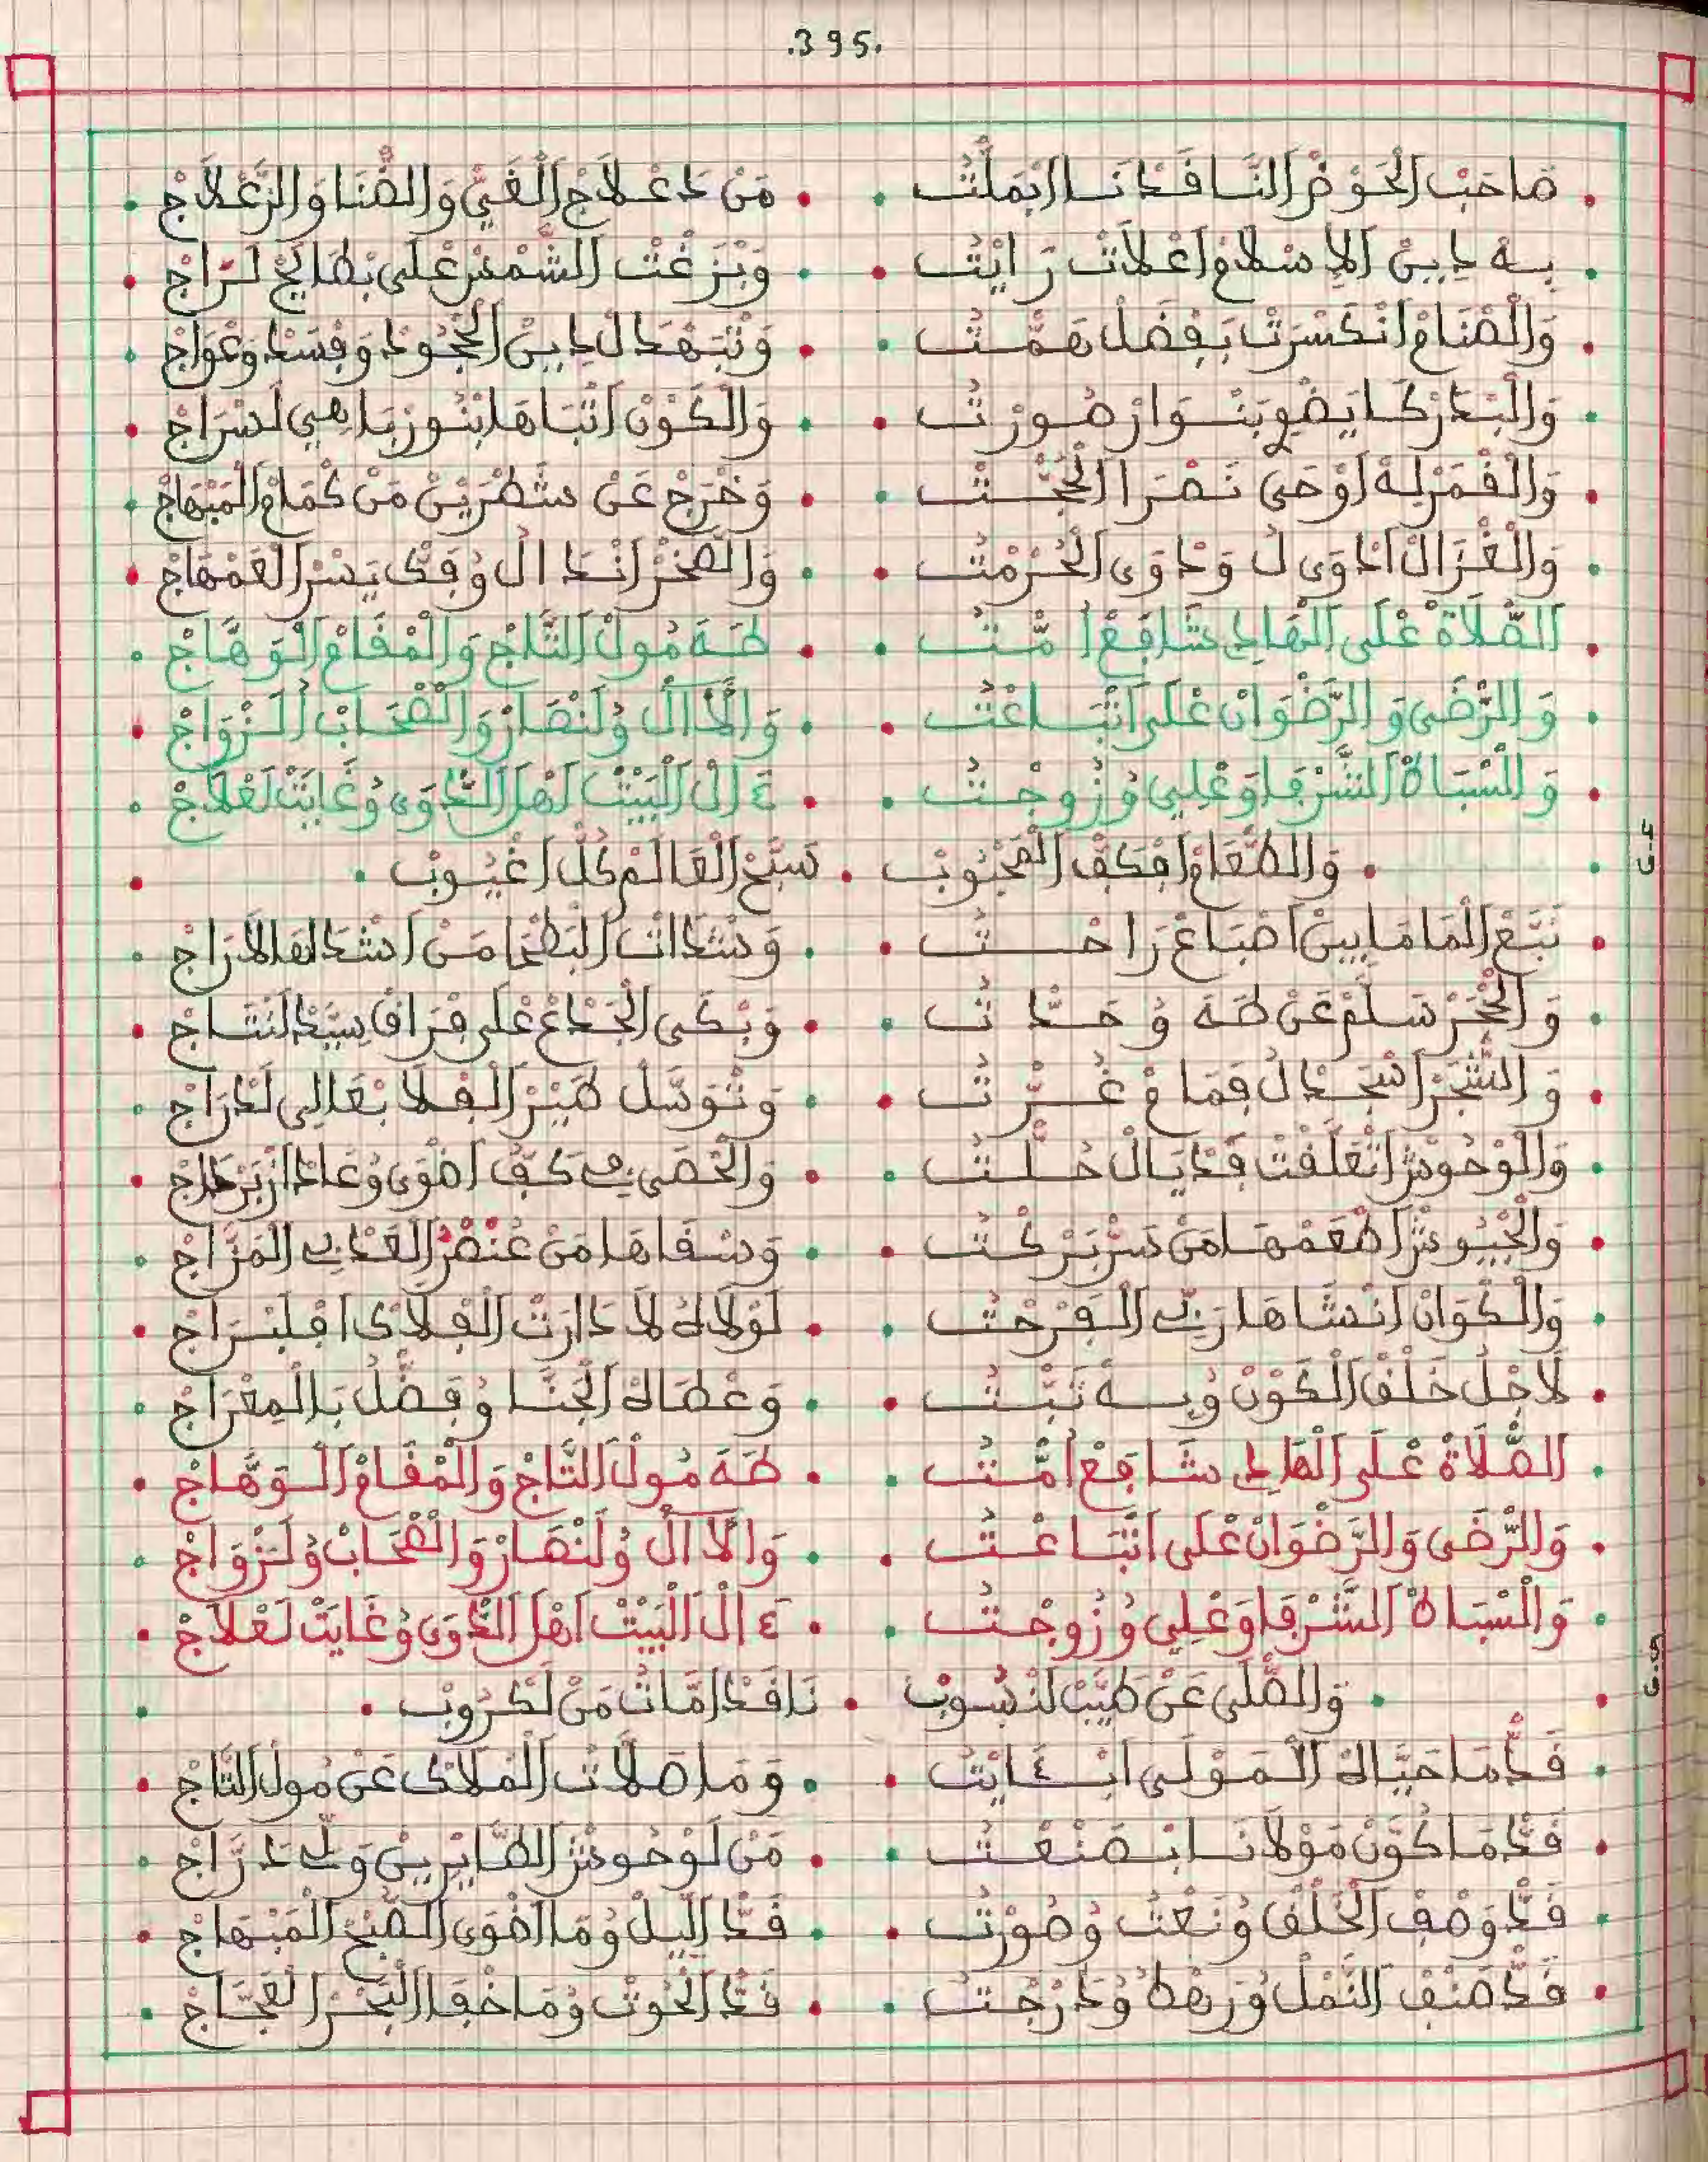 .395.
صَاحَبْ الْحَوْضْ النَّافَدْنَا ابْمَلْتُ • مَنْ دَعْلَاجْ الْغَيّْ وَالضْنَا وَالزَّعْلَاجْ
بِهْ دِينْ الِاسْلَامْ اعْلَاتْ رَايْتُ • وَبْزَغْتْ الشَّمْسْ عْلَى بْطَايَحْ لَـرَاجْ
وَالْصْنَامْ انْكَسْرَتْ بَفْضَلْ هَمّْتُ • وَنْتَهْدَالْ دِينْ الْجْحُودْ وَفْسَدْ وَعْوَاجْ
وَالْبَدْرْ كَايَضْوِي بَنْوَارْ صُورْتُ • وَالْكَوْنْ اتْبَاهَا بْنُورْ بَاهِي لَسْرَاجْ
وَالْقْمَرْ لِهْ اوْحَى نَصْرَا الْحُجّْتُ • وَخْرَجْ عَنْ شَطْرَيْنْ مَنْ كْمَامْ الْمَبْهَاجْ
وَالْغْزَالْ ادْوَى لُ وَدْوَى الْحُرْمْتُ • وَالصّْخَرْ انْدَالُ وُفَكّْ يَسْرْ الْعَمْهَاجْ
الصّْلَاةْ عْلَى الْهَادِي شَافِعْ امّْتُ • طَهَ مُولْ التَّاجْ وَالْمْقَامْ الْوَهَّاجْ
وَالرّْضَى وَالرَّضْوَانْ عْلَى اتْبَاعْتُ • وَالْاَالْ وُلَنْصَارْ وَالصّْحَابْ الَـزْوَاجْ
وَالسْبَاطْ الشَّرْفَا وَعْلِي وُزُوجْتُ • ءَالْ الْبَيْتْ اهْلْ الدّْوَى وُغَايَتْ لَعْلَاجْ
وَالطّْعَامْ افْكَفّْ الْمَحْبُوبْ • سَبَّحْ الْعَالَمْ كُلّْ اغْيُوبْ
نَبْعْ الْمَا مَابِينْ اصْبَاعْ رَاحْتُ • وَسْدَاتْ الْبَطْحَا مَنْ اشْدَالْهَا لَدْرَاجْ
وَالْحْجَرْ سَلَّمْ عَنْ طَهَ وُحَدّْتُ • وَبْكَى الْجْدَعْ عْلَى فْرَاقْ سِيدْ النْتَاجْ
وَالشّْجَرْ اسْجَدْ لُ فَمَامْ غُرّْتُ • وَتْوَسّْلْ طَيْرْ الْفْلَا بْعَالِي لَدْرَاجْ
وَالْوْحُوشْ اتْعَلّْقَتْ فَدْيَالْ حُلّْتُ • وَالْحْصَى فِي كَفّْ اضْوَى وُعَادْ ازْبَرْجَدَاجْ
وَالْجْيُوشْ اطْعَمْهَا مَنْ سَرّْ بَرْكْتُ • وَسْقَاهَا مَنْ عُنْصْرْ الْعَدْبِ الْمَزَاجْ
وَالْكْوَانْ انْشَاهَا رَبِّي الْفَرْحْتُ • لَوْلَاهْ لَا دَارَتْ الْفْلَاكْ افْلَبْرَاجْ
لَاجْلُ خَلْقْ الْكَوْنْ وُبِهْ تَبّْتُ • وَعْطَاهْ الْجْنَّا وُفَضّْلُ بَالْمِعْرَاجْ
الصّْلَاةْ عْلَى الْهَادِي شَافِعْ امّْتُ • طَهَ مُولْ التَّاجْ وَالْمْقَامْ الْوَهَّاجْ
وَالرّْضَى وَالرَّضْوَانْ عْلَى اتْبَاعْتُ • وَالْاَالْ وُلَنْصَارْ وَالصّْحَابْ وُلَـزْوَاجْ
وَالسْبَاطْ الشَّرْفَا وَعْلِي وُزُوجْتُ • ءَالْ الْبَيْتْ اهْلْ الدّْوَى وُغَايَتْ لَعْلَاجْ
وَالصّْلَى عَنْ طَيَّبْ لَنْسُوبْ • نَافْدَامَّاتُ مَنْ لَكْرُوبْ
قَدّْ مَا حَيَّاهْ الْمَوْلَى ابْءَايْتُ • وَمَا صْلَّاتْ الْمْلَاكْ عَنْ مُولْ التَّاجْ
قَدّْ مَا كَوَّنْ مَوْلَانَا ابْصَنْعْتُ • مَنْ لَوْحُوشْ الطَّايْرِينْ وَلِّي دَرَّاجْ
قَدّْ وَصْفْ الْخَلْقْ وُنَعْتُ وُصُورْتُ • قَدّْ اللِّيلْ وُمَا اضْوَى الصّْبَحْ الْمَبْهَاجْ
قَدّْ صَنْفْ النّْمَلْ وُرَهْطُ وُدَرْجْتُ • قَدّْ الْحُوتْ وُمَا خْفَا الْبْحَرْ الْعَجَّاجْ